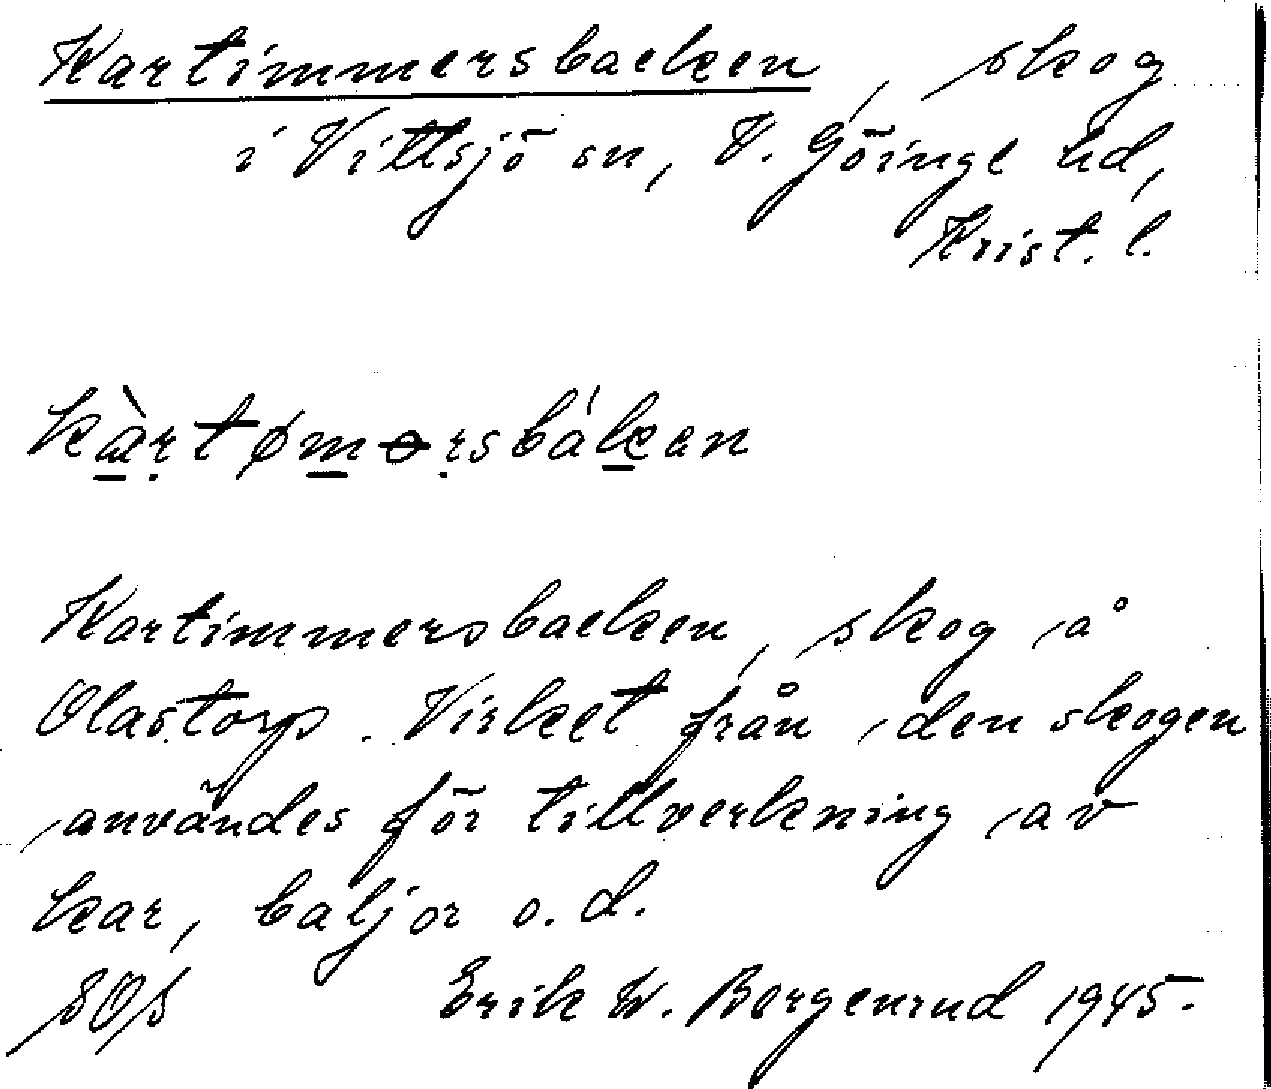 Kartimmersbacken, skog
i Vittsjö sn, V. Göinge hd,
Krist. l.
kàrtømɵrsbákan
Kartimmersbacken, skog å
Olastorp. Virket från den skogen
användes för tillverkning av
kar, baljor o. d.
SOS Erik W. Bergenrud 1945.